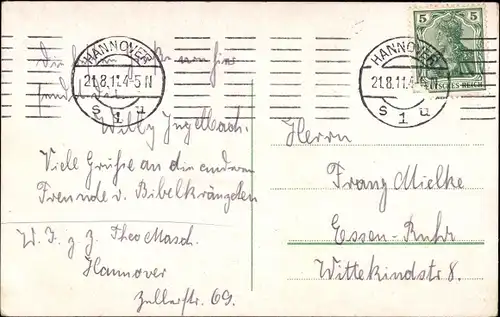 HANNOVER
21.8.11.4-5N
S 1 u
HANNOVER
21.8.11.4-5N
S 1 u
5 5
DEUTSCHES REICH
Willy Jugelbach.
Viele Grüße an die anderen
Freunde v. Bibelkränzchen
W. J. z. Z. Theo Masch.
Hannover
Zellerstr. 69.
Herrn
Franz Mielke
Essen-Ruhr
Wittekindstr 8.